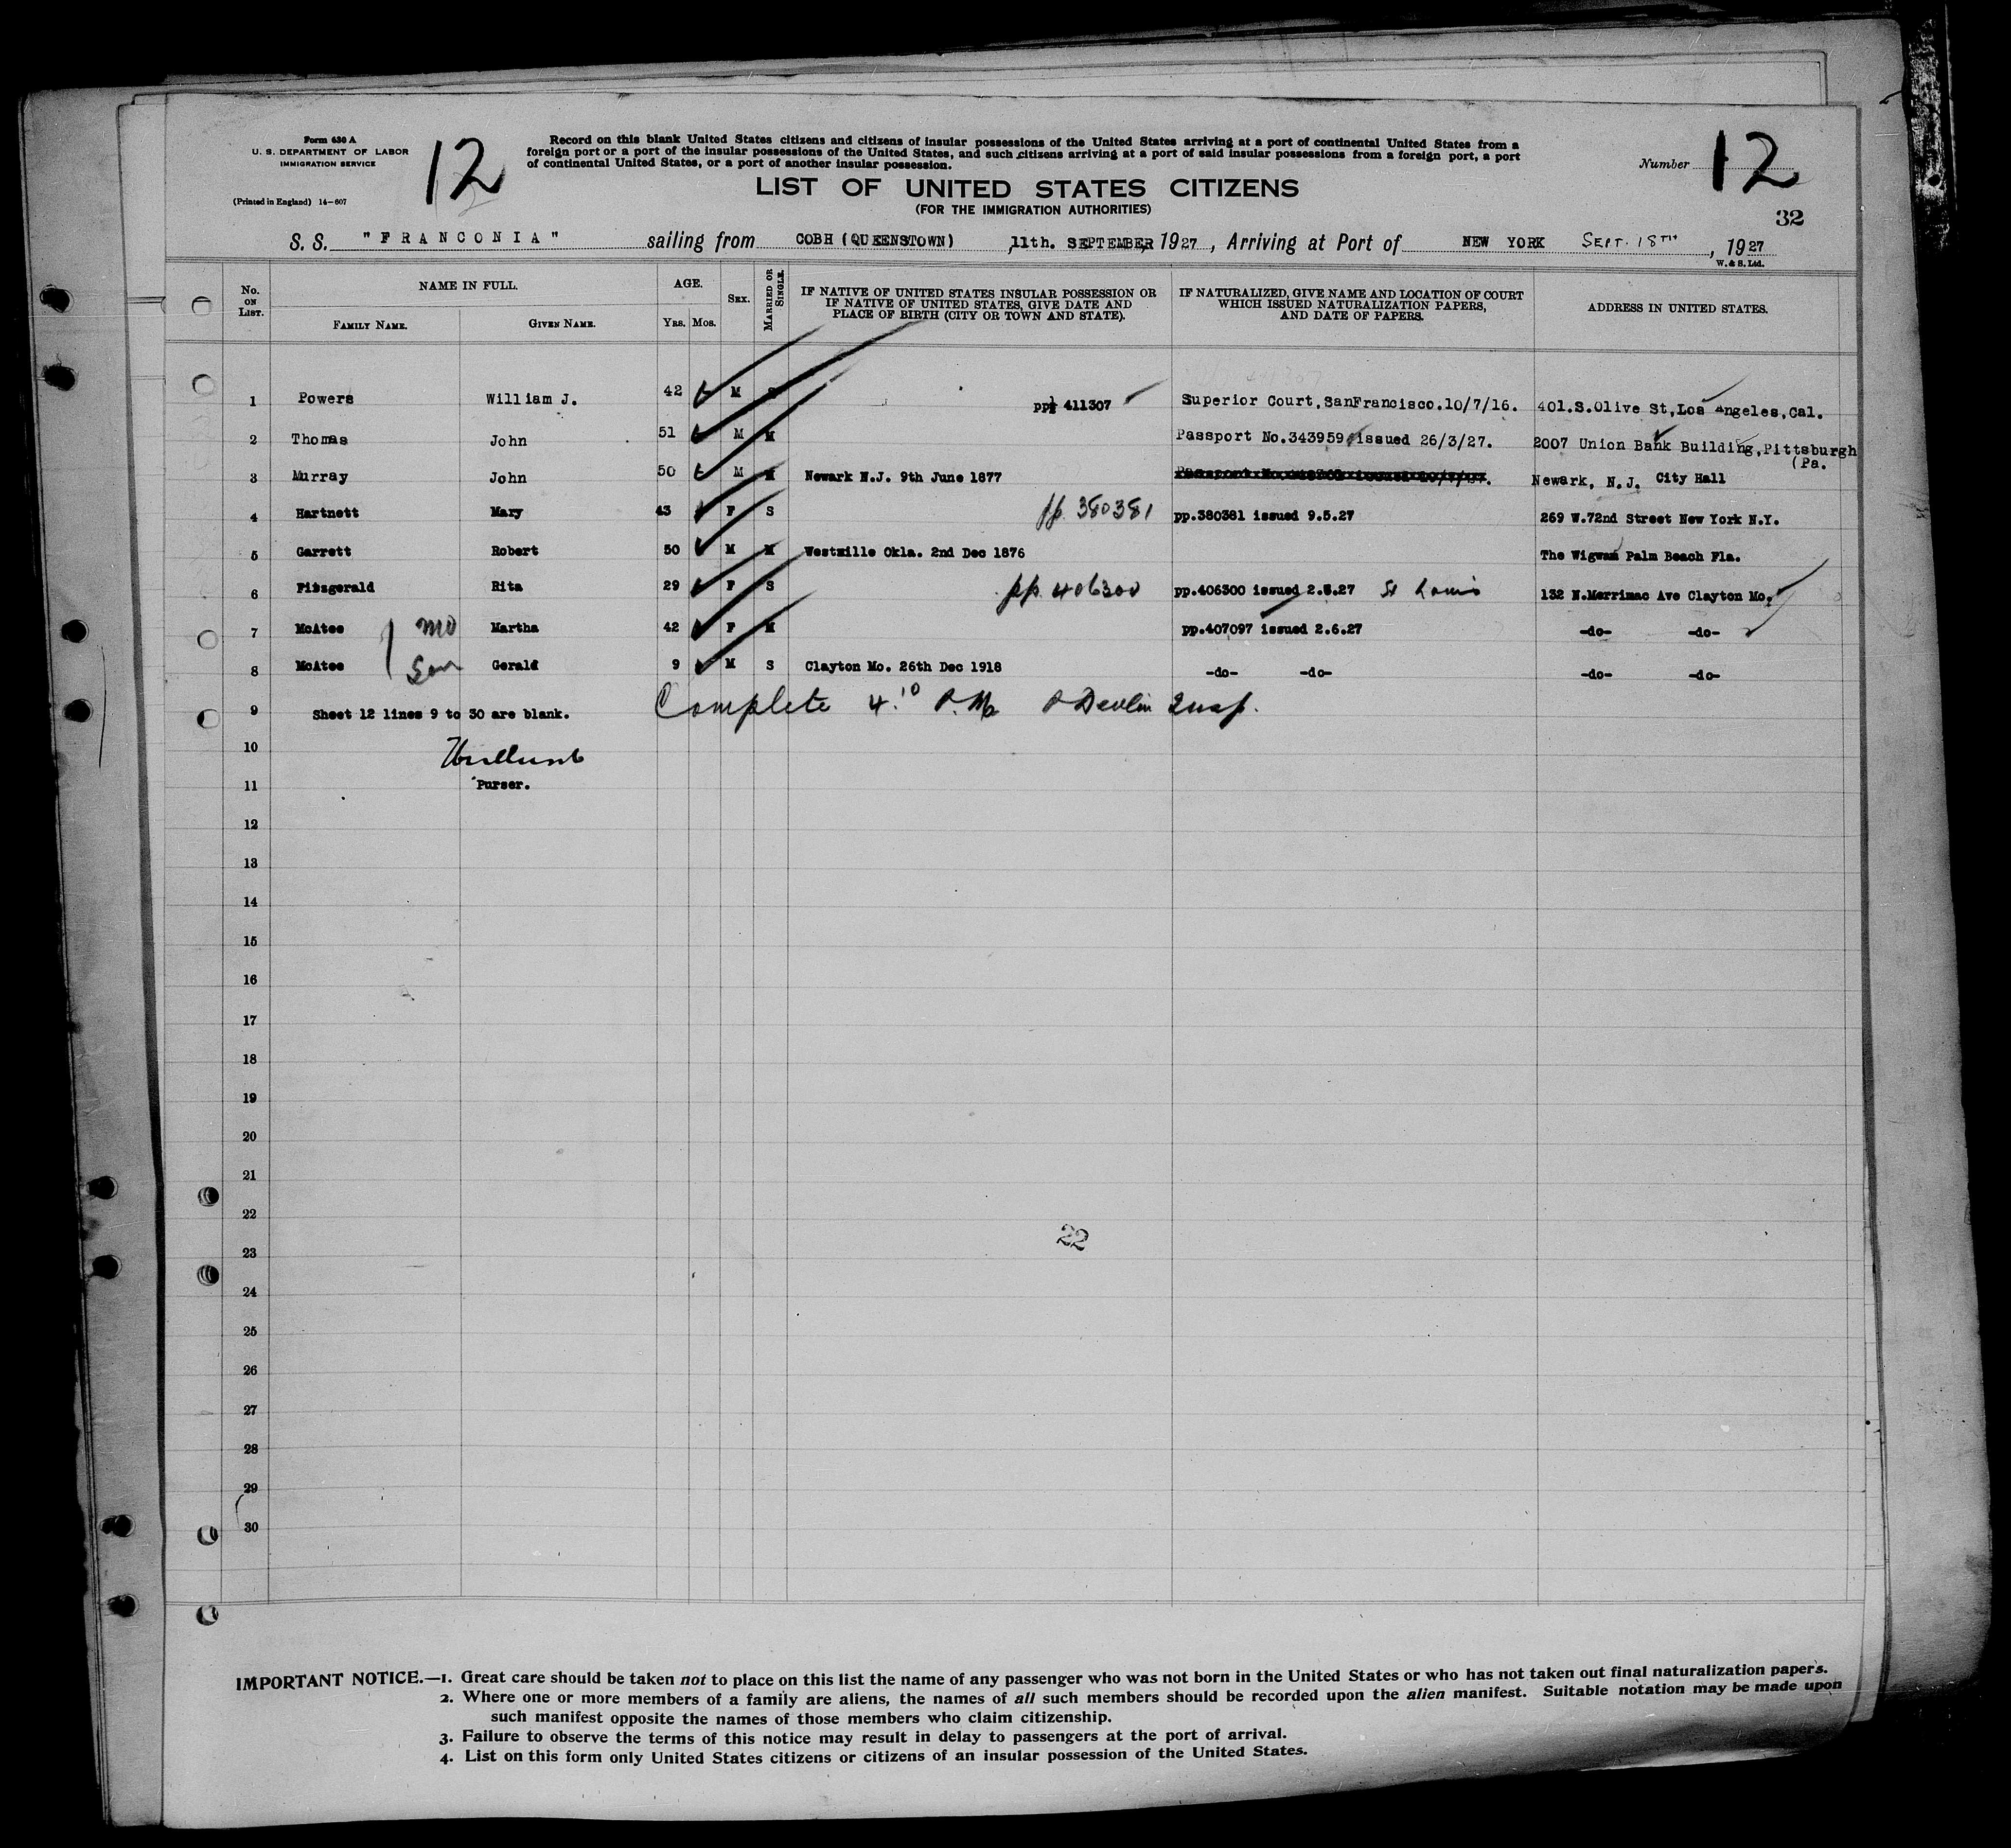 Form 630 A
U. S. DEPARTMENT OF LABOR
IMMIGRATION SERVICE
(Printed in England) 14-607
12
Record on this blank United States citizens and citizens of insular possessions of the United States arriving at a port of continental United States from a
foreign port or a port of the insular possessions of the United States, and such citizens arriving at a port of said insular possessions from a foreign port, a port
of continental United States, or a port of another insular possession.
LIST OF UNITED STATES CITIZENS
(FOR THE IMMIGRATION AUTHORITIES)
Number 12
32
S. S. "FRANCONIA" sailing from COBH (QUEENSTOWN) ,11th. SEPTEMBER, 1927, Arriving at Port of NEW YORK SEPT. 18TH, 1927
W. & S. Ltd.
No. ON LIST.
NAME IN FULL.
FAMILY NAME. GIVEN NAME.
AGE.
YRS. MOS.
SEX.
MARRIED OR SINGLE.
IF NATIVE OF UNITED STATES INSULAR POSSESSION OR
IF NATIVE OF UNITED STATES, GIVE DATE AND
PLACE OF BIRTH (CITY OR TOWN AND STATE).
IF NATURALIZED, GIVE NAME AND LOCATION OF COURT
WHICH ISSUED NATURALIZATION PAPERS,
AND DATE OF PAPERS.
ADDRESS IN UNITED STATES.
1 Powers William J. 42 M S pp 411307 Superior Court, SanFrancisco.10/7/16. 401.S.Olive St,Los Angeles,Cal.
2 Thomas John 51 M M Passport No.343959 issued 26/3/27. 2007 Union Bank Building,Pittsburgh
(Pa.
3 Murray John 50 M M Newark N.J. 9th June 1877 Newark, N.J. City Hall
4 Hartnett Mary 43 F S pp. 380381 pp.380381 issued 9.5.27 269 W.72nd Street New York N.Y.
5 Garrett Robert 50 M M Westville Okla. 2nd Dec 1876 The Wigwam Palm Beach Fla.
6 Fitzgerald Rita 29 F S pp. 406300 pp.406300 issued 2.6.27 St Louis 132 N.Merrimac Ave Clayton Mo.
7 McAtee mo Martha 42 F M pp.407097 issued 2.6.27 -do- -do-
8 McAtee Son Gerald 9 M S Clayton Mo. 26th Dec 1918 -do- -do- -do- -do-
9 Sheet 12 lines 9 to 30 are blank. Complete 4.10 P.M. P Devlin Insp.
10
11 Purser.
12
13
14
15
16
17
18
19
20
21
22
22
23
24
25
26
27
28
29
30
IMPORTANT NOTICE.—1. Great care should be taken not to place on this list the name of any passenger who was not born in the United States or who has not taken out final naturalization papers.
2. Where one or more members of a family are aliens, the names of all such members should be recorded upon the alien manifest. Suitable notation may be made upon
such manifest opposite the names of those members who claim citizenship.
3. Failure to observe the terms of this notice may result in delay to passengers at the port of arrival.
4. List on this form only United States citizens or citizens of an insular possession of the United States.